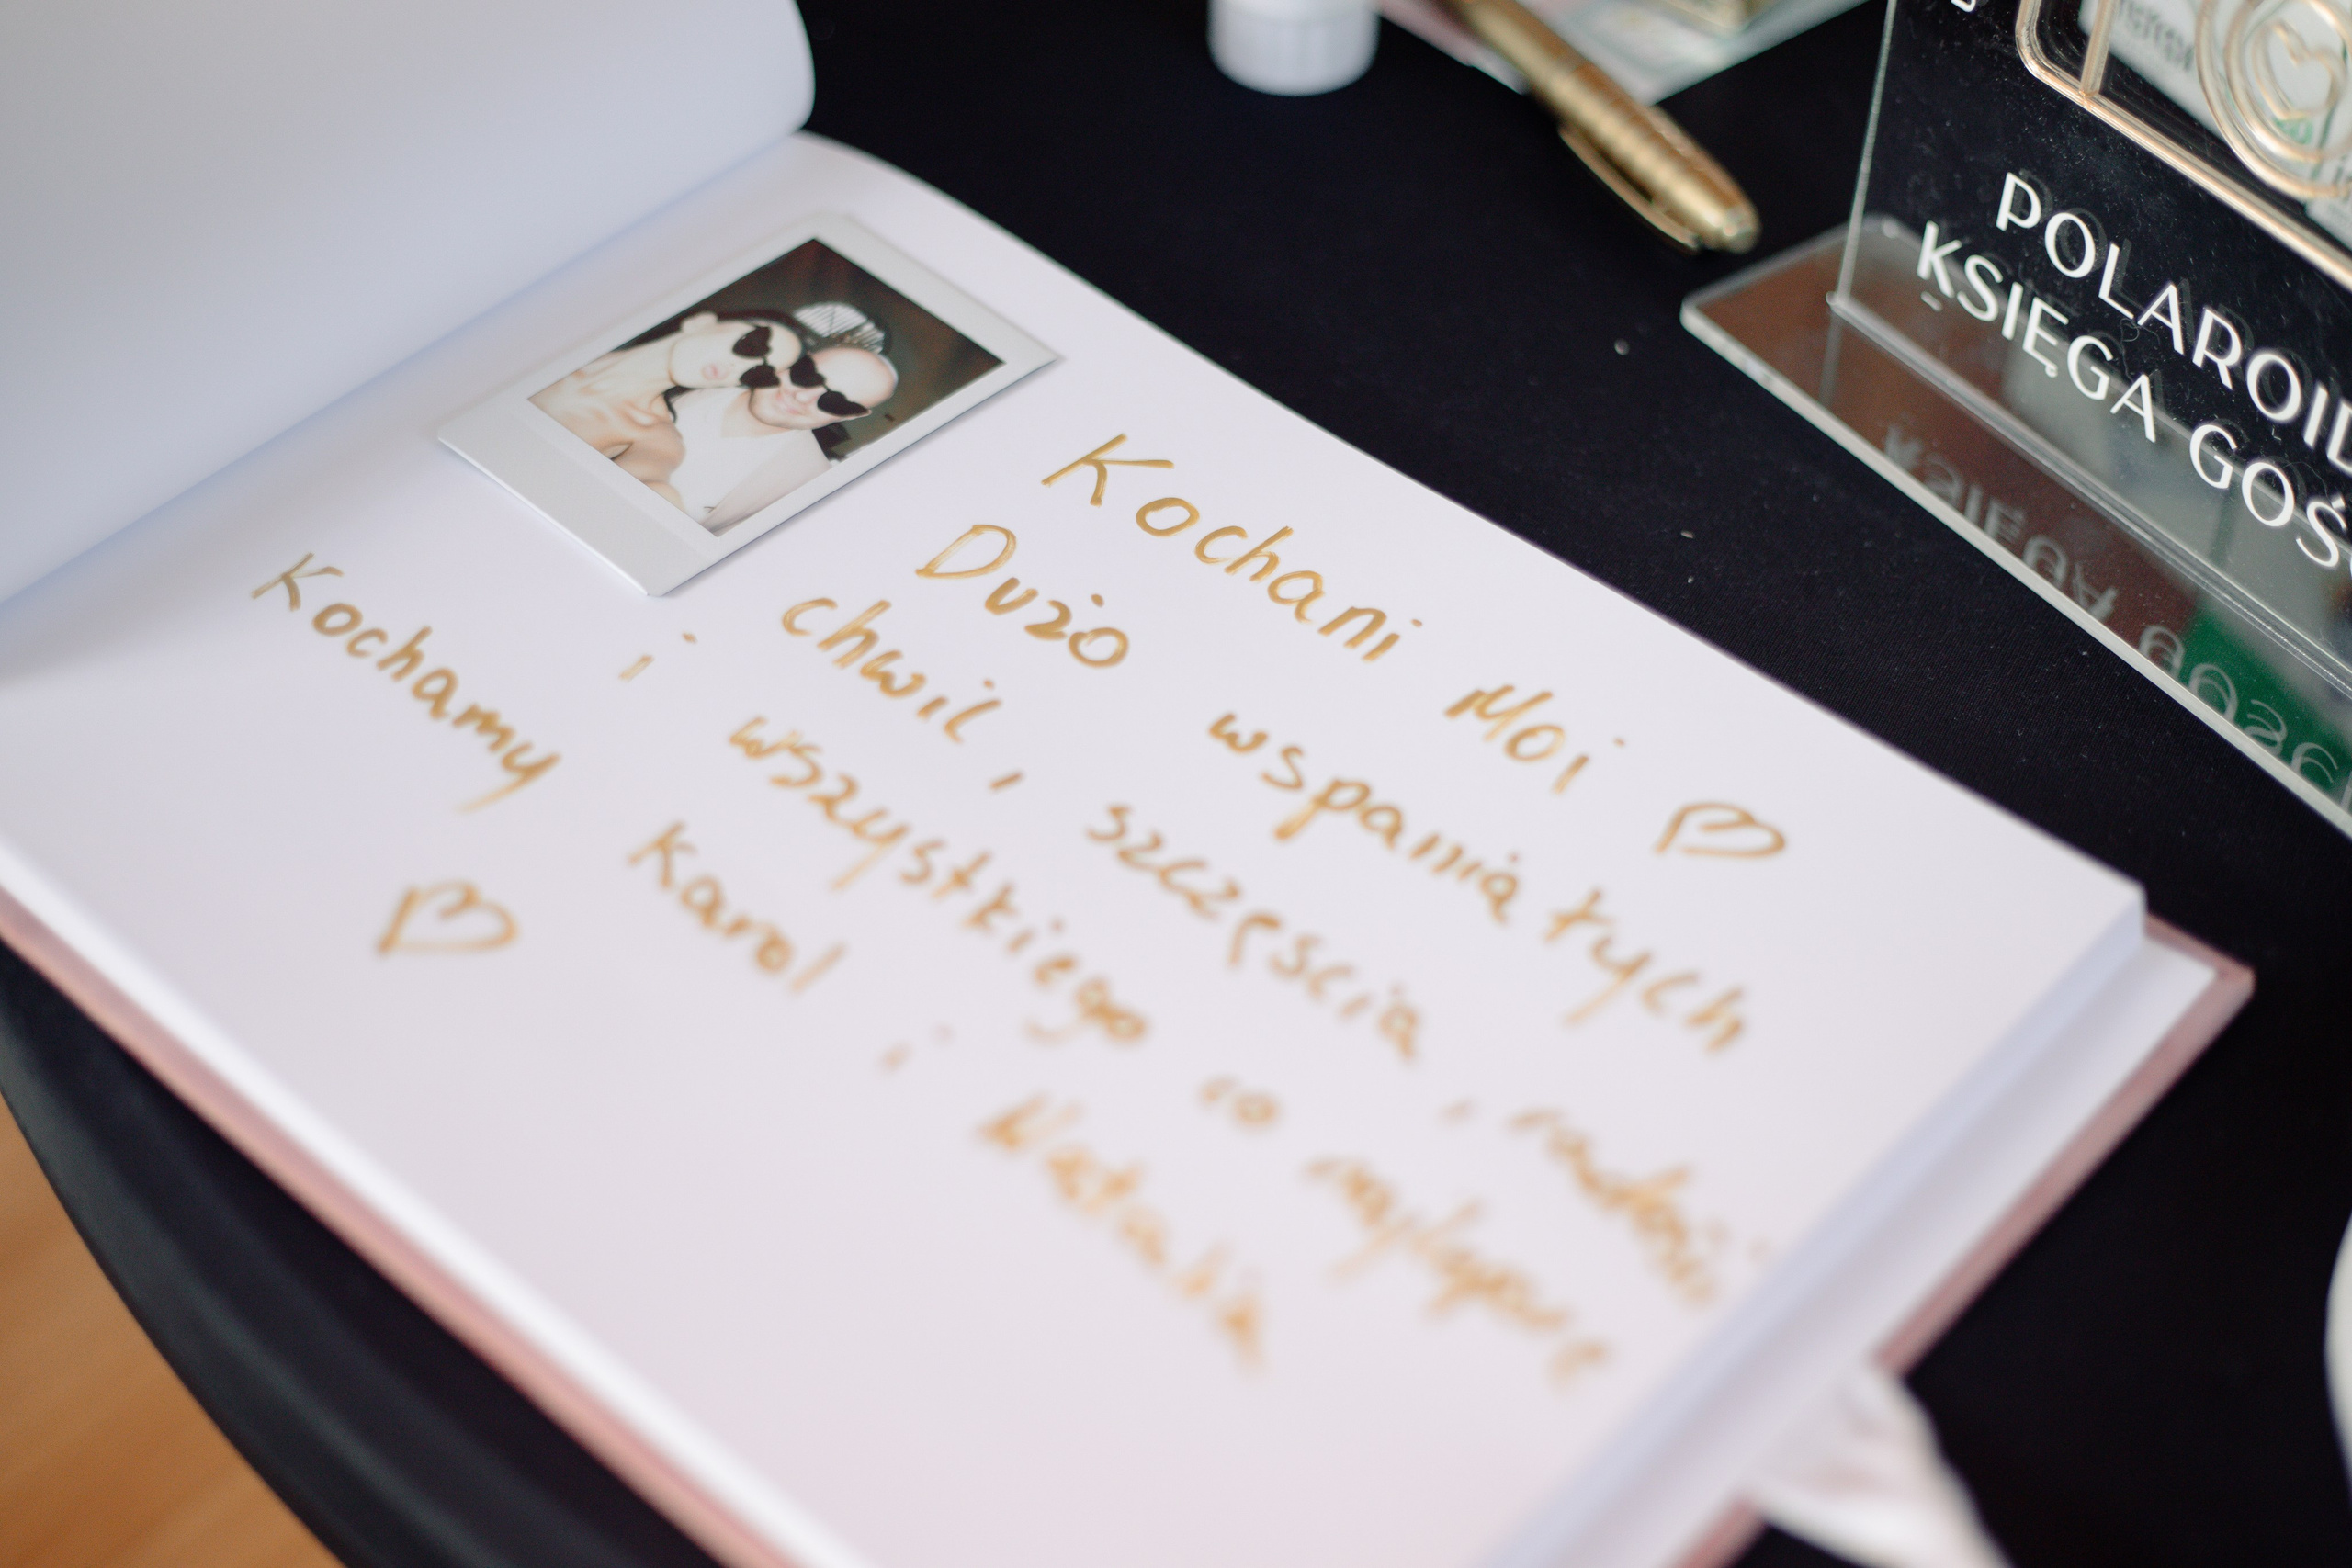 Kochani Moi ♡
Dużo wspaniałych
chwil, szczęścia, radości
i wszystkiego co najlepsze
Kochamy Karol i Natalia
♡
POLAROID
KSIĘGA GOŚ